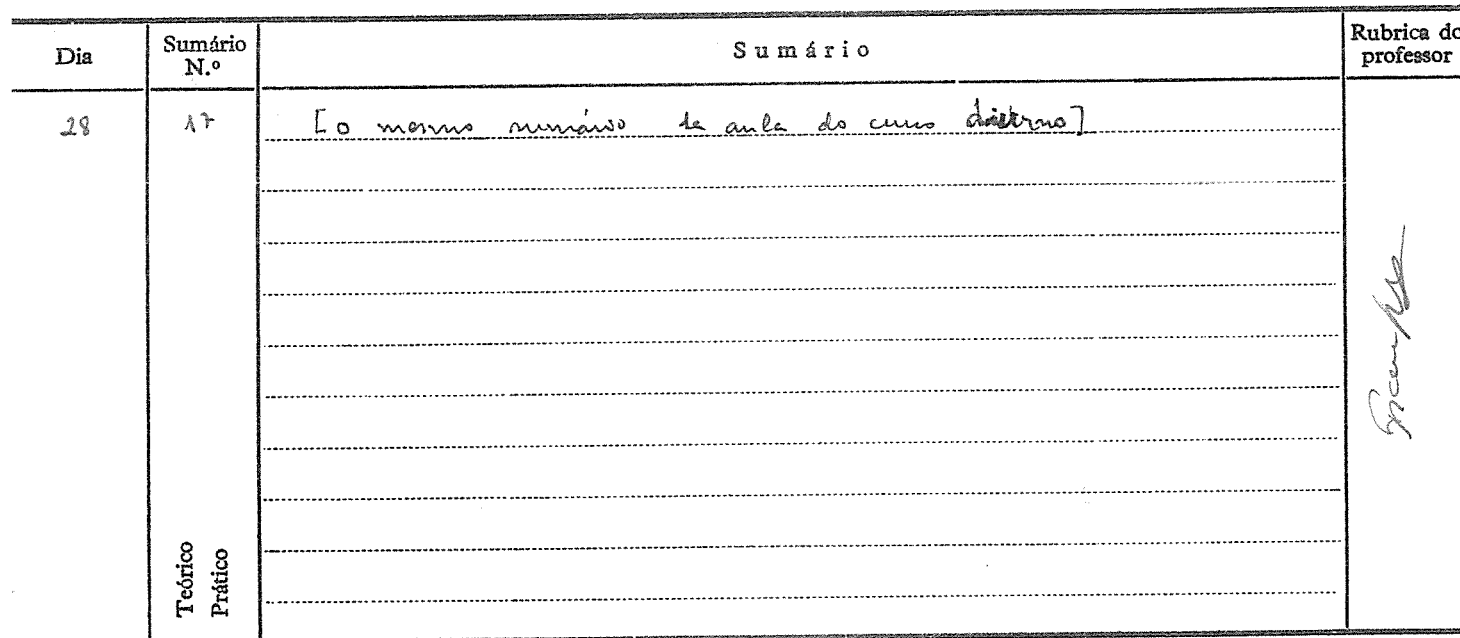 Dia
Sumário N.º
Sumário
Rubrica do professor
28
17
[o mesmo sumário da aula do curso diurno]
Teórico
Prático